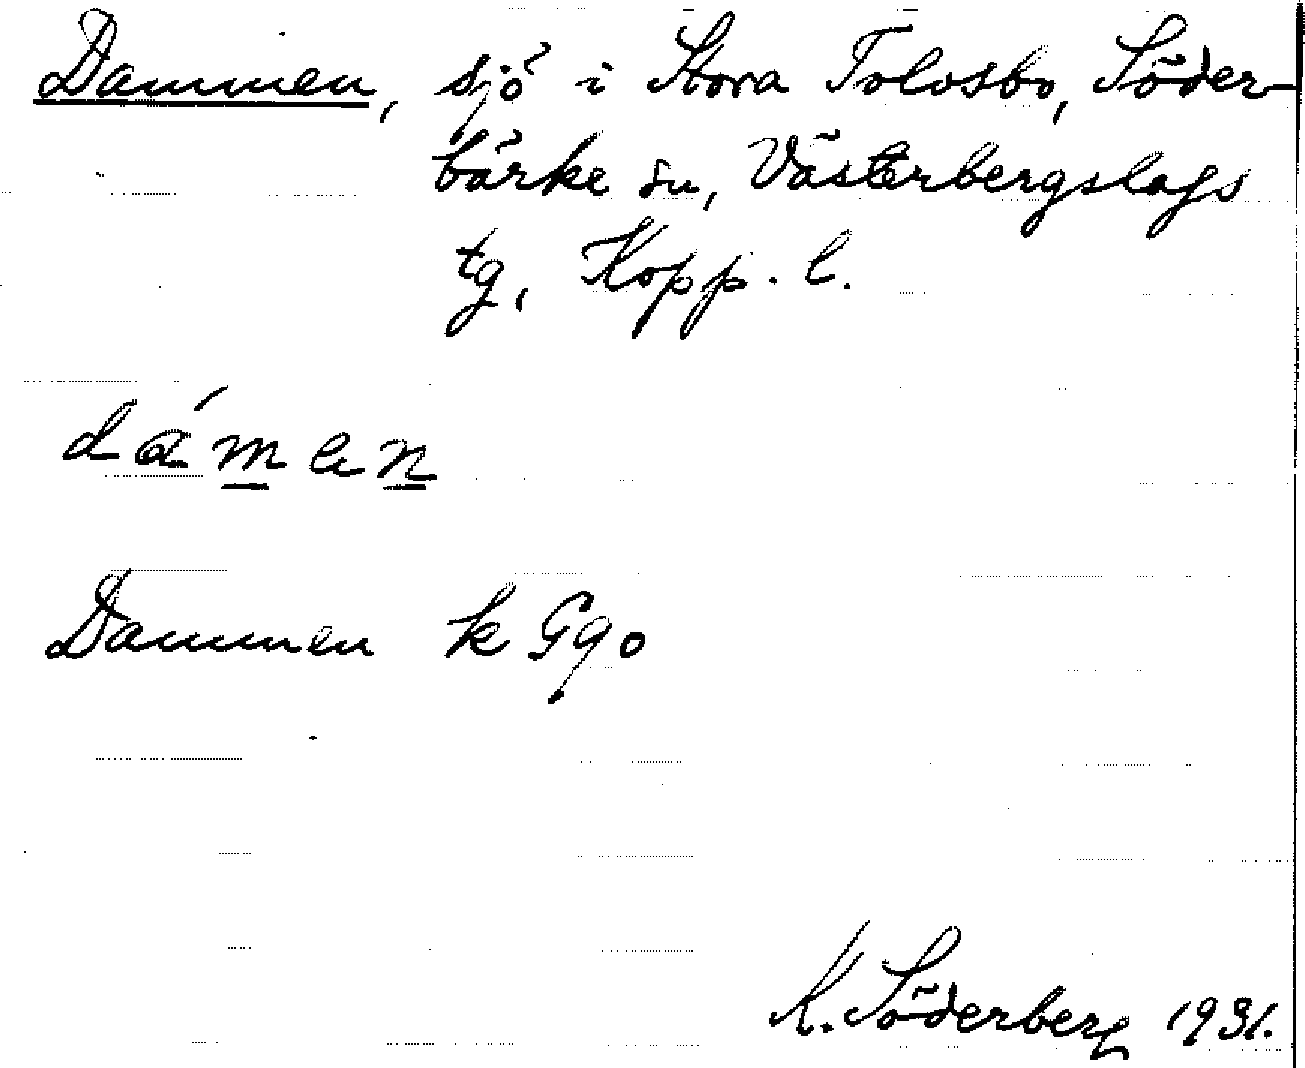 Dammen, sjö i Stora Tolvsbo, Söder-
bärke sn, Västerbergslags
tg, Kopp. l.
dámen
Dammen k Ggo
K. Söderberg 1931.